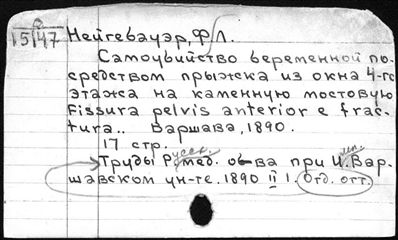 15147 Нейгебауэр, Ф. Л.
Самоубийство беременной по-
средством прыжка из окна 4-го
этажа на каменную мостовую
Fissura pelvis anterior e frac-
tura.. Варшава, 1890.
17 стр.
Труды Русск. мед. о-ва при И.мп. Вар-
шавском ун-те. 1890 II 1. Отд. отт.